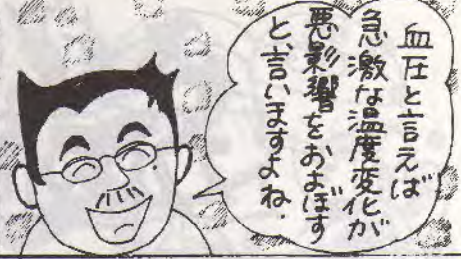 血圧と言えば
急激な温度変化が
悪影響をおよぼす
と、言いますよね.